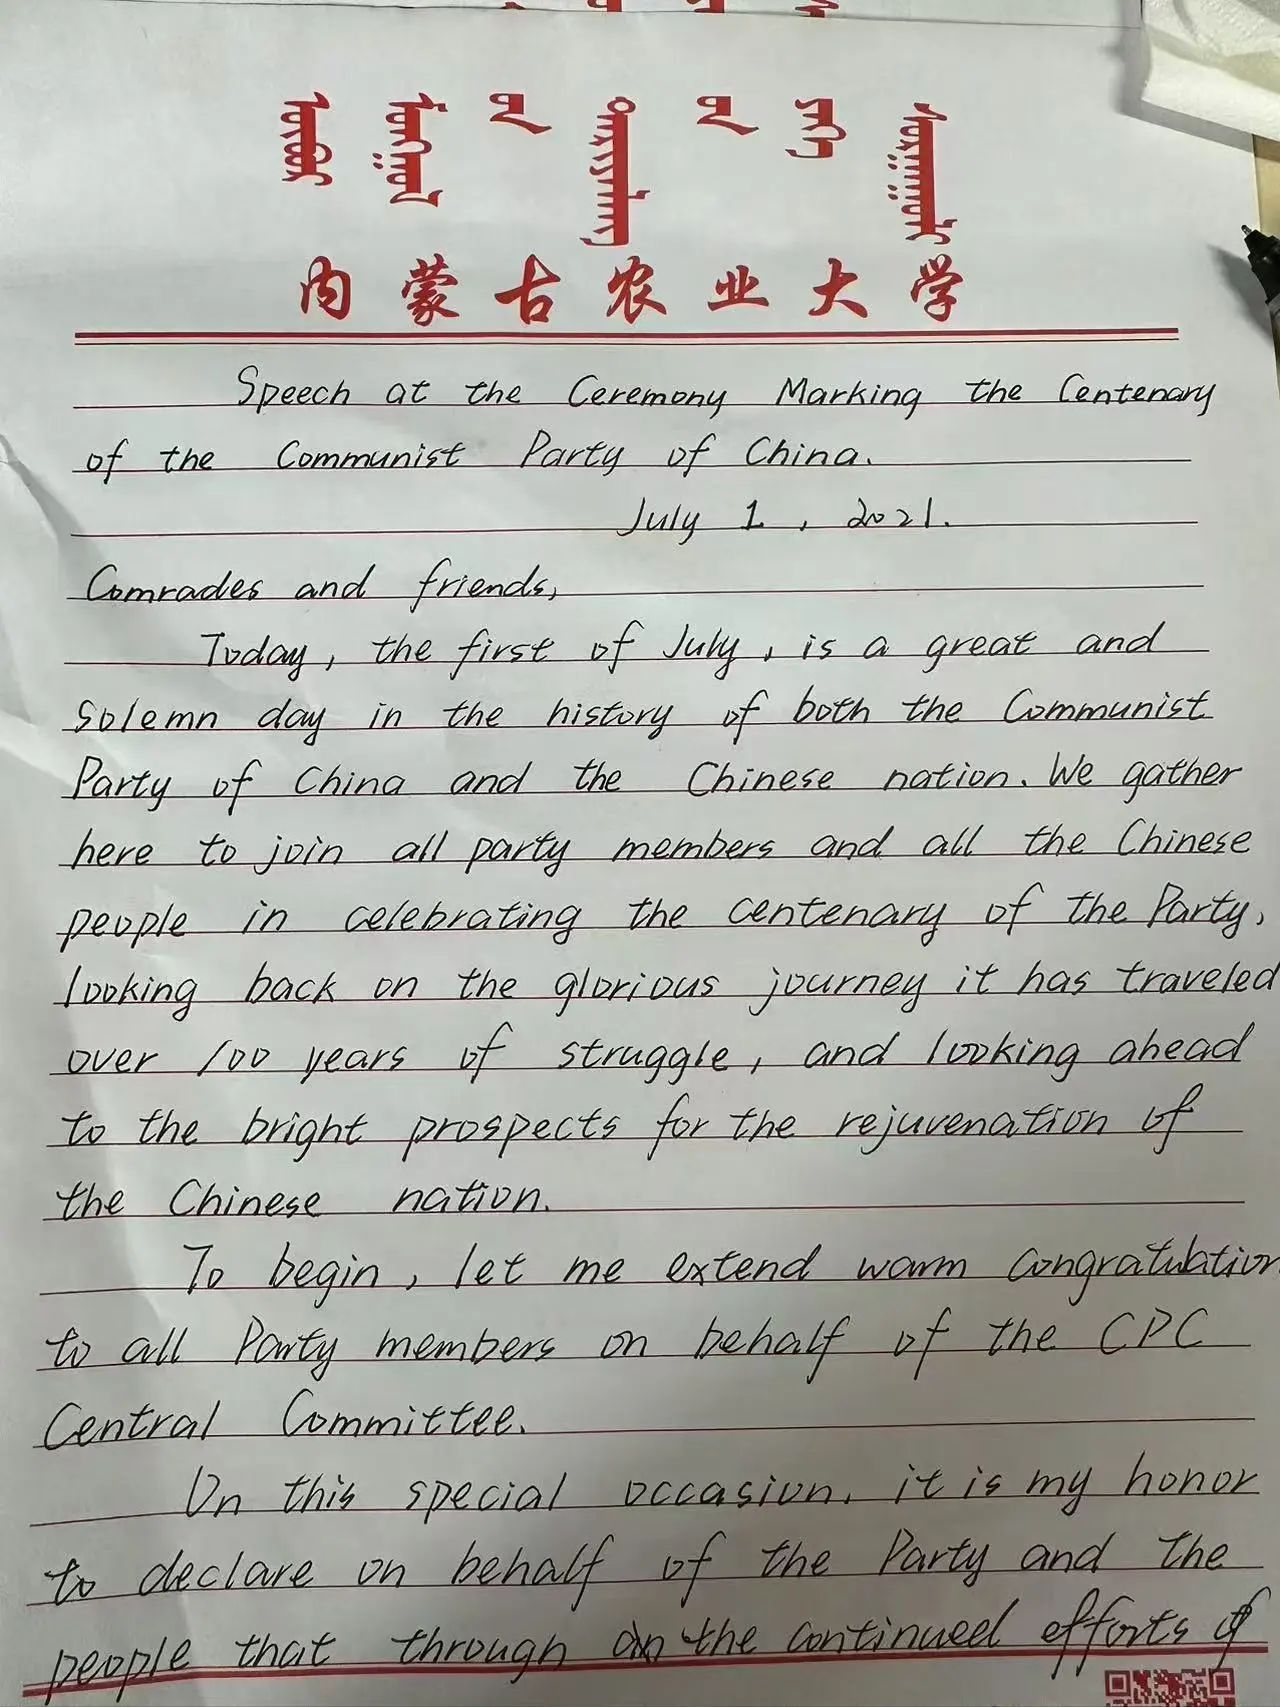 ᠥᠪᠥᠷ ᠮᠣᠩᠭᠣᠯ ᠤᠨ
内蒙古农业大学
Speech at the Ceremony Marking the Centenary
of the Communist Party of China.
July 1, 2021.
Comrades and friends,
Today, the first of July, is a great and
solemn day in the history of both the Communist
Party of China and the Chinese nation. We gather
here to join all party members and all the Chinese
people in celebrating the centenary of the Party,
looking back on the glorious journey it has traveled
over 100 years of struggle, and looking ahead
to the bright prospects for the rejuvenation of
the Chinese nation.
To begin, let me extend warm congratulation
to all Party members on behalf of the CPC
Central Committee.
On this special occasion, it is my honor
to declare on behalf of the Party and the
people that through the continued efforts of